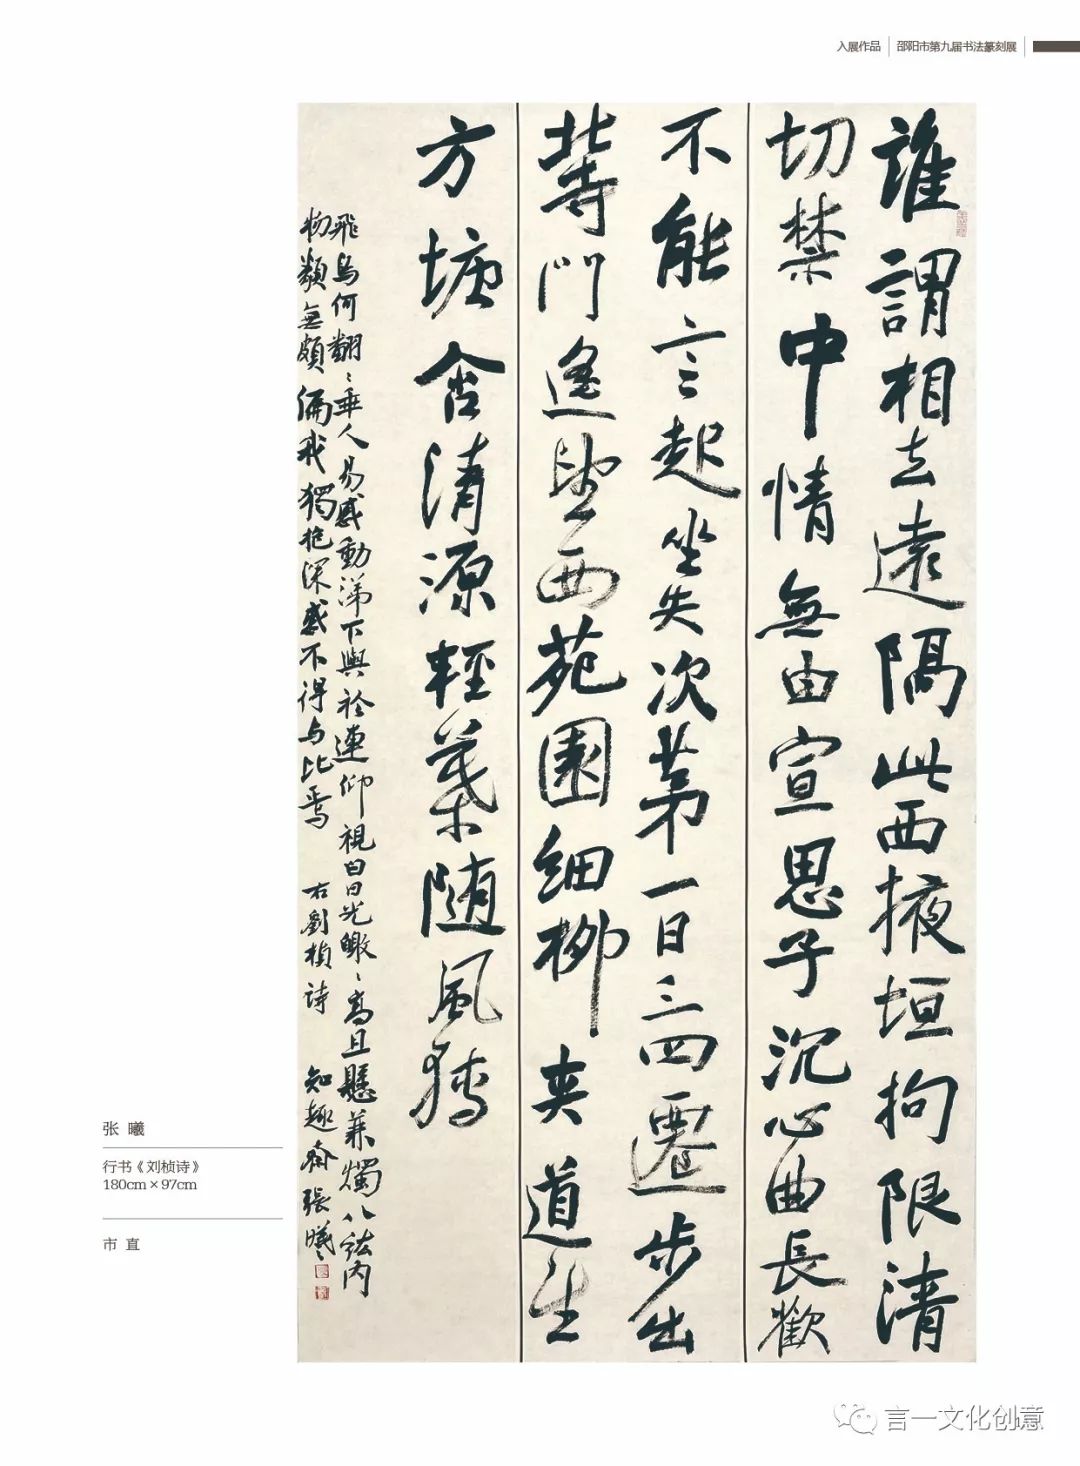 入展作品 | 邵阳市第九届书法篆刻展
誰謂相去遠隔此西掖垣拘限清
切禁中情無由宣思子沉心曲長歎
不能言起坐失次第一日三四遷步出
北寺門遙望西苑園細柳夾道生
方塘含清源輕葉随風轉
飛鳥何翻〻乖人易感動涕下與衿連仰視白日光皦〻高且懸兼燭八紘内
物類無頗偏我獨抱深感不得与比焉 右劉楨诗 知趣齋張曦
张 曦
行书《刘桢诗》
180cm×97cm
市 直
言一文化创意